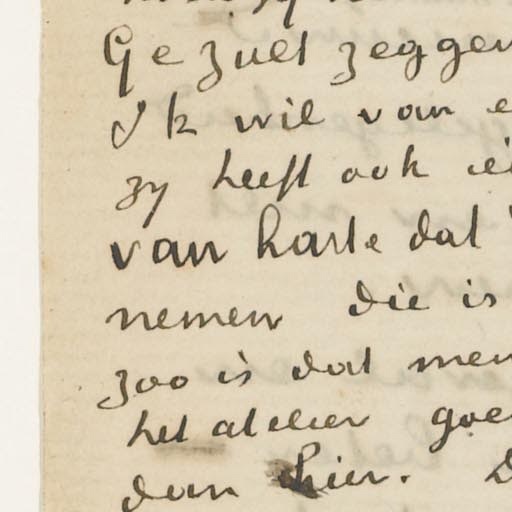 Ge zult zeggen
Ik wil van e
zy heeft ook ée
van harte dat
nemen die is
zoo is dat men
het atelier goe
dan hier. D